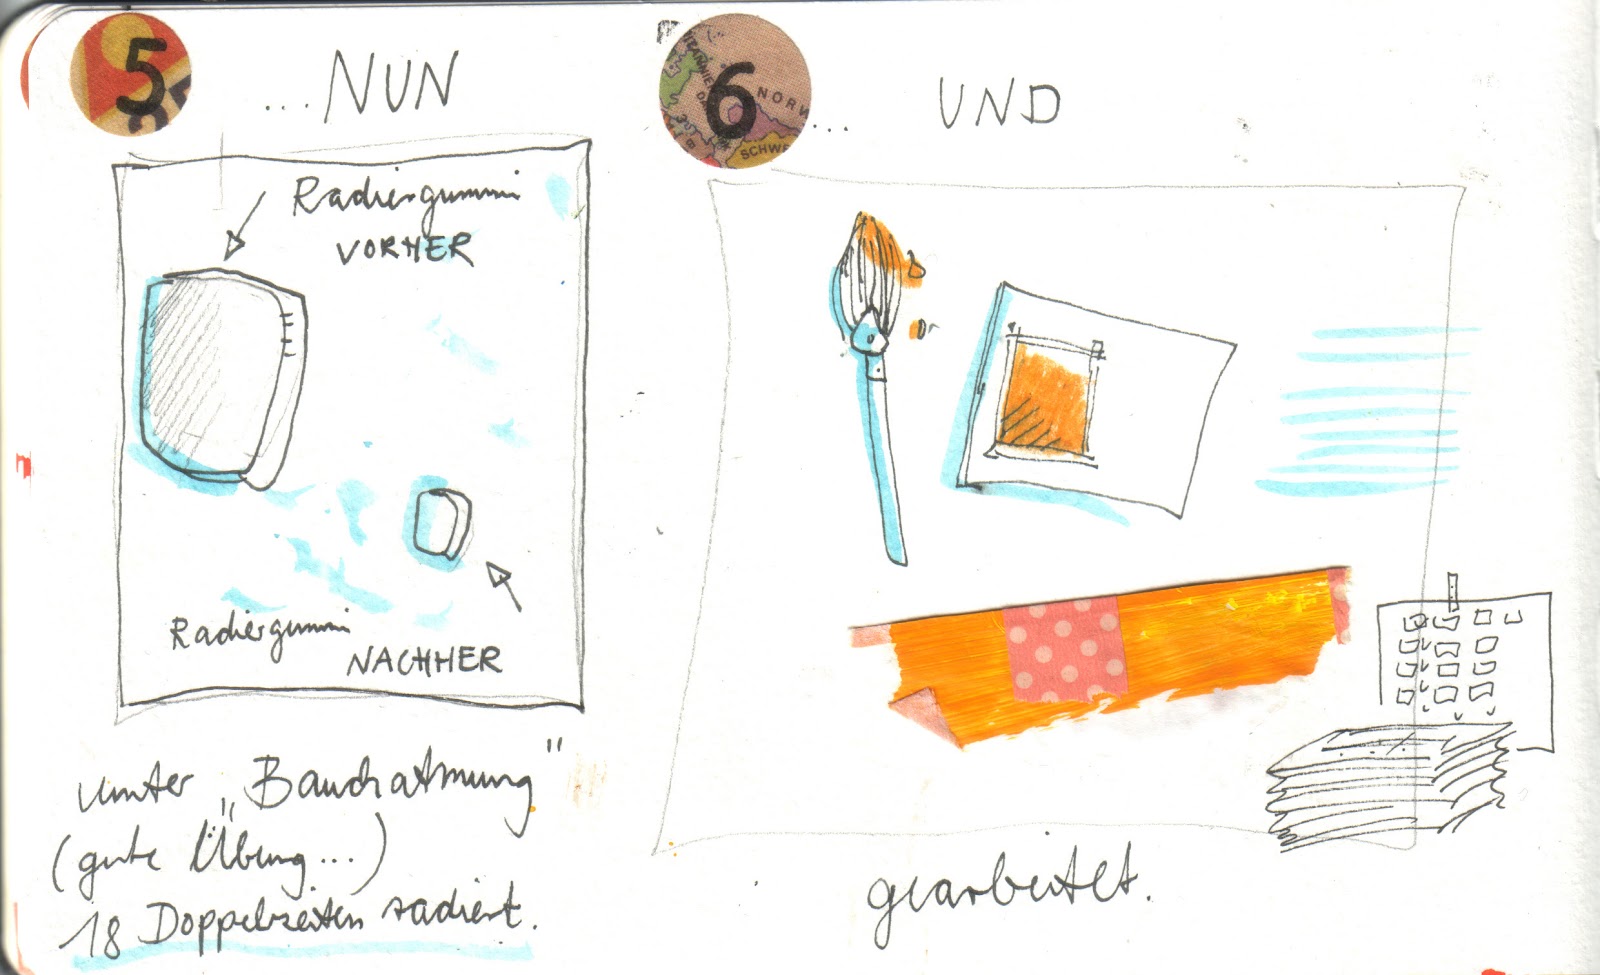 5
... NUN
Radiergummi
VORHER
Radiergummi
NACHHER
unter „Bauchatmung"
(gute Übung...)
18 Doppelseiten radiert.
6
NORW
SCHWE
... UND
gearbeitet.